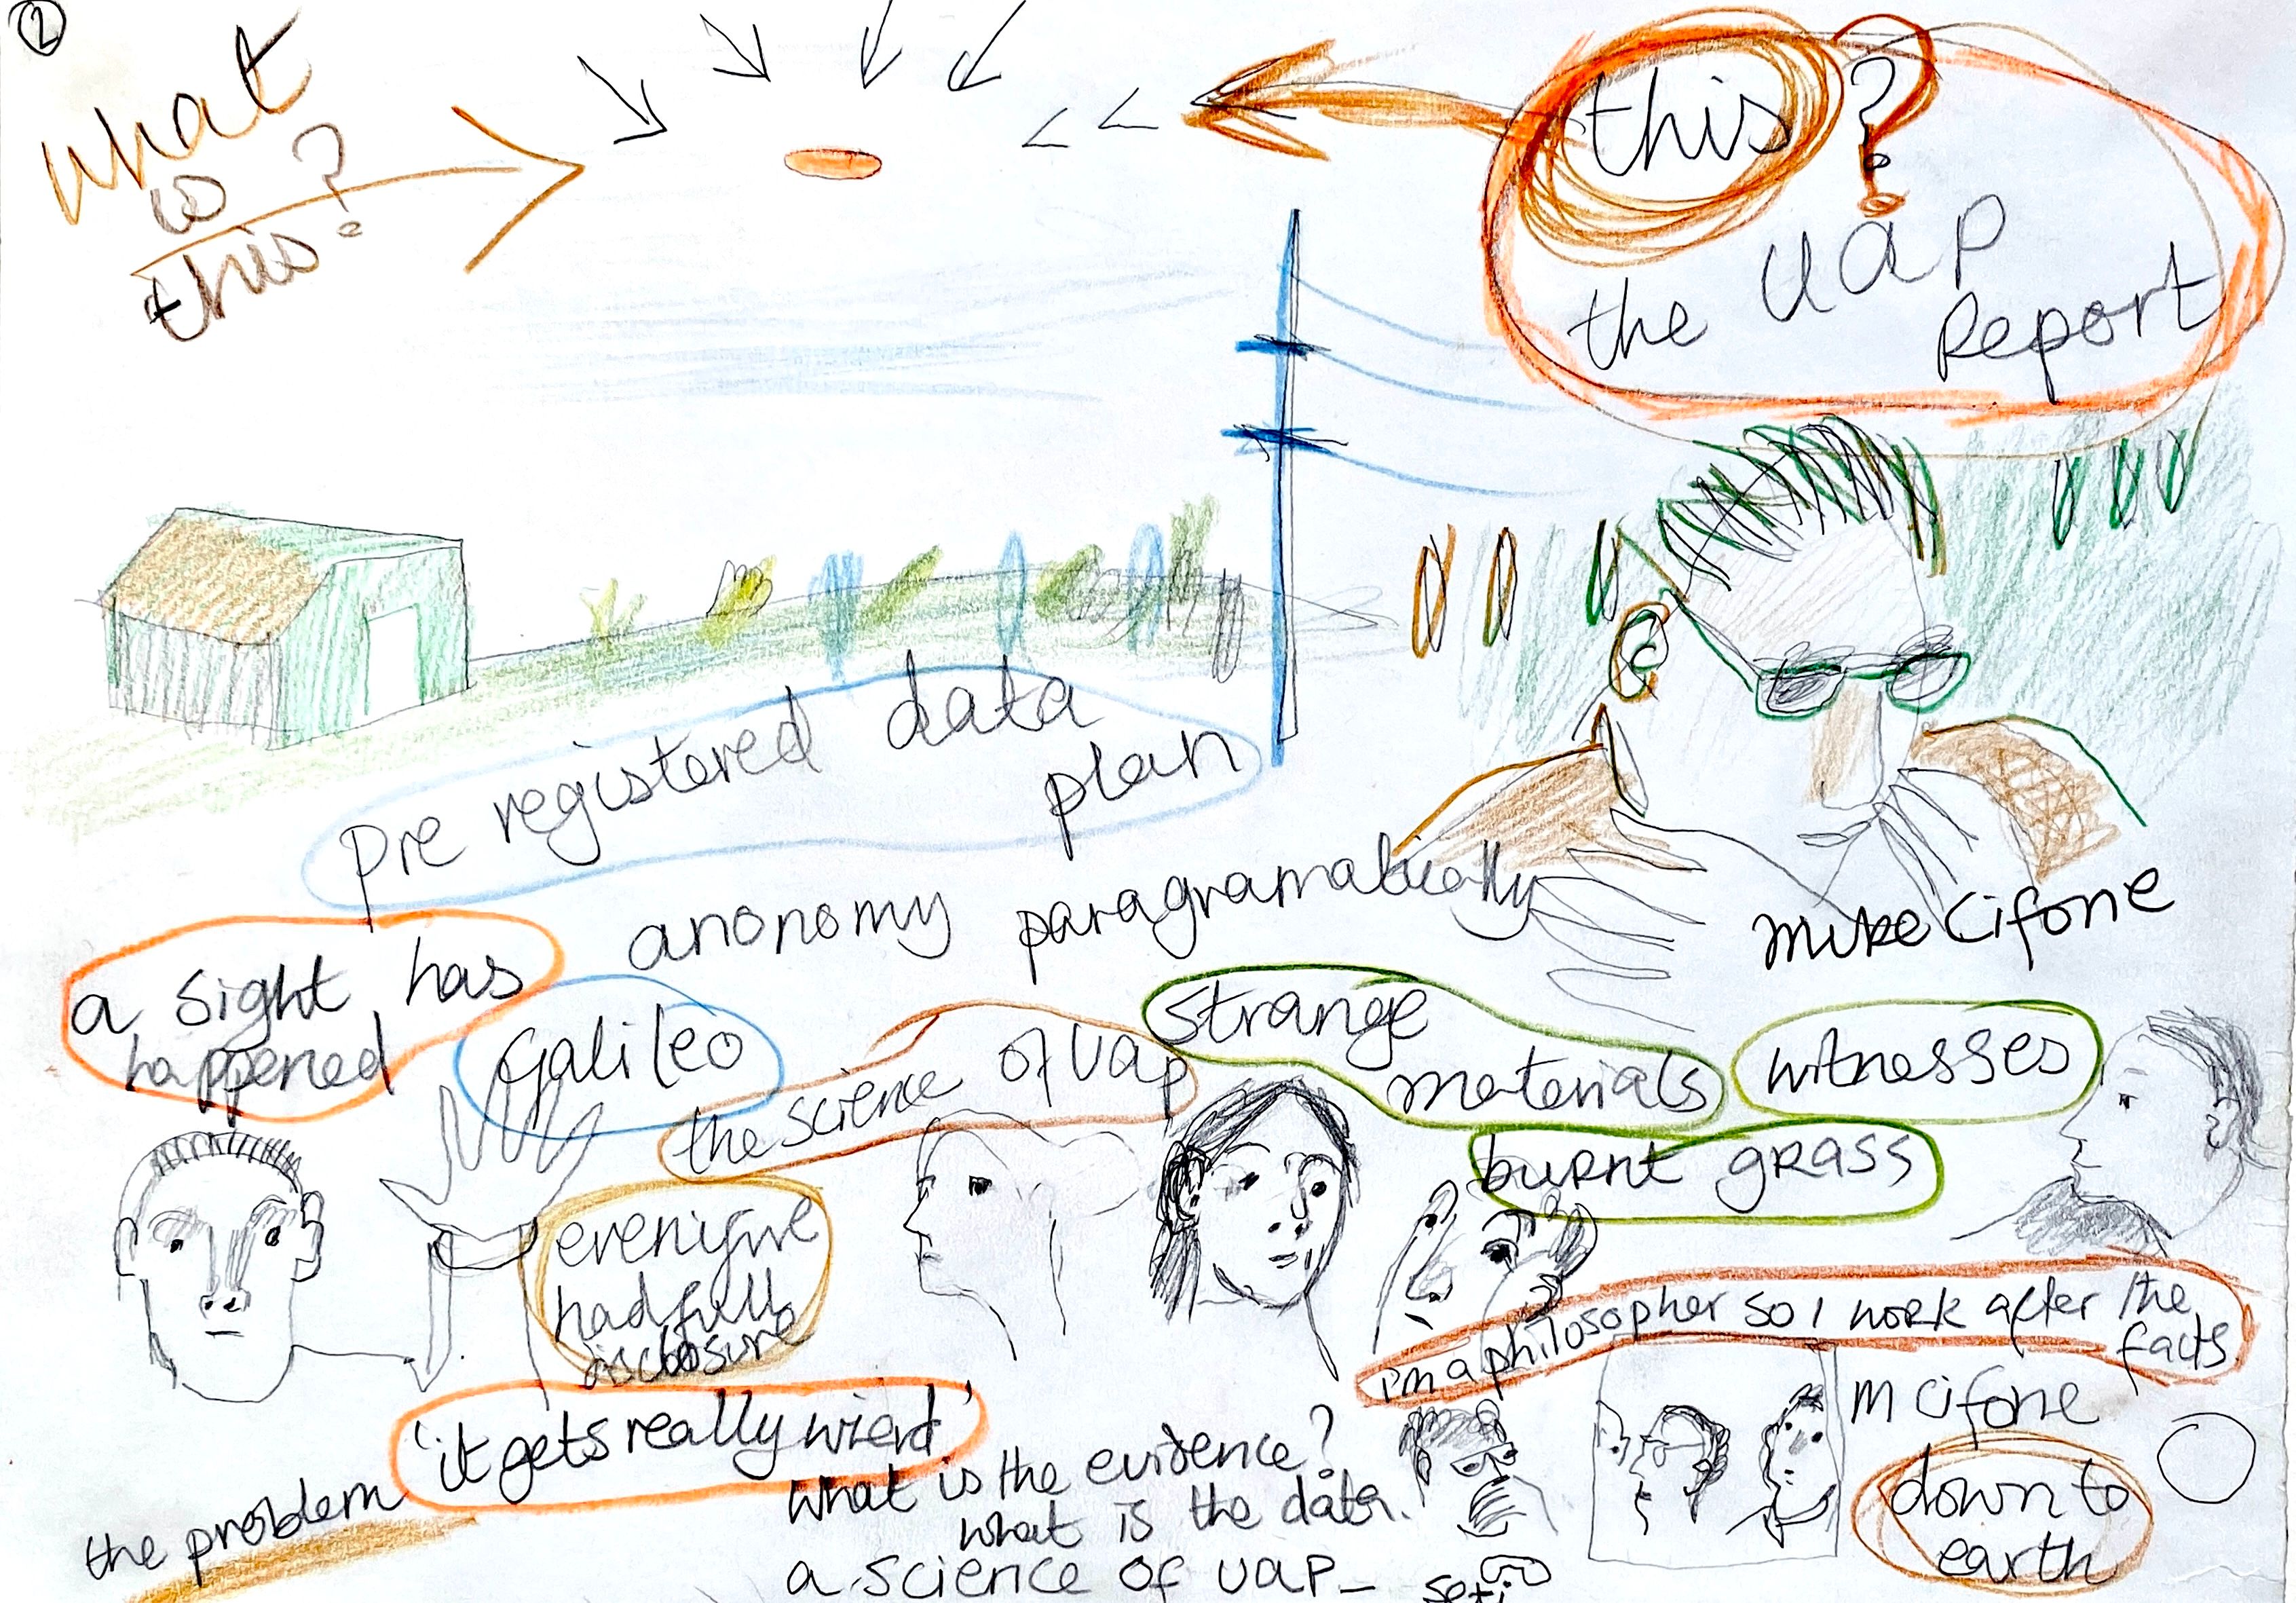 2
what
is ?
this
this ?
the UAP
Report
pre registered data
plan
anonomy paragramatically
mike Cifone
a sight has
happened
Galileo
the science of Uap
strange
materials
witnesses
burnt grass
had full
disclosure
im a philosopher so I work after the
facts
'it gets really wierd'
the problem
what is the evidence?
what is the data.
a science of UAP_
m cifone
down to
earth
seti